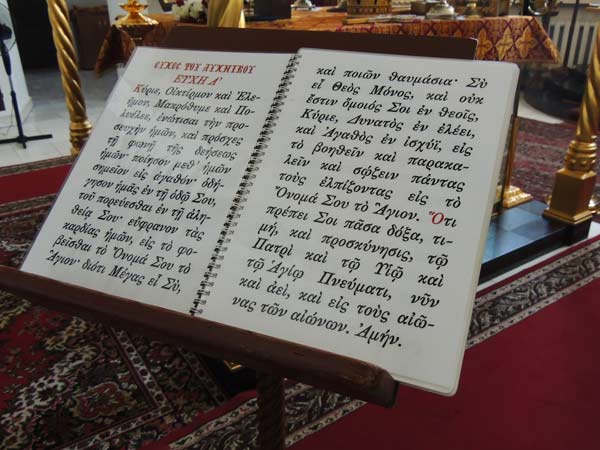 ΕΥΧΟΣ ΤΟΥ ΛΥΧΝΙΚΟΥ
ΕΥΧΗ Α'
Κύριε, Οἰκτίρμον καὶ Ἐλε-
ῆμον, Μακρόθυμε καὶ Πο-
λυέλεε, ἐνώτισαι τὴν προ-
σευχὴν ἡμῶν, καὶ πρόσχες
τῇ φωνῇ τῆς δεήσεως
ἡμῶν· ποίησον μεθ' ἡμῶν
σημεῖον εἰς ἀγαθόν· ὁδή-
γησον ἡμᾶς ἐν τῇ ὁδῷ Σου,
τοῦ πορεύεσθαι ἐν τῇ ἀλη-
θείᾳ Σου· εὔφρανον τὰς
καρδίας ἡμῶν, εἰς τὸ φο-
βεῖσθαι τὸ Ὄνομά Σου τὸ
Ἅγιον· διότι Μέγας εἶ Σύ,
καὶ ποιῶν θαυμάσια· Σὺ
εἶ Θεὸς Μόνος, καὶ οὐκ
ἔστιν ὅμοιός Σοι ἐν θεοῖς,
Κύριε, Δυνατὸς ἐν ἐλέει,
καὶ Ἀγαθὸς ἐν ἰσχύϊ, εἰς
τὸ βοηθεῖν καὶ παρακα-
λεῖν καὶ σῴζειν πάντας
τοὺς ἐλπίζοντας εἰς τὸ
Ὄνομά Σου τὸ Ἅγιον. Ὅτι
πρέπει Σοι πᾶσα δόξα, τι-
μή, καὶ προσκύνησις, τῷ
Πατρὶ καὶ τῷ Υἱῷ καὶ
τῷ Ἁγίῳ Πνεύματι, νῦν
καὶ ἀεί, καὶ εἰς τοὺς αἰῶ-
νας τῶν αἰώνων. Ἀμήν.